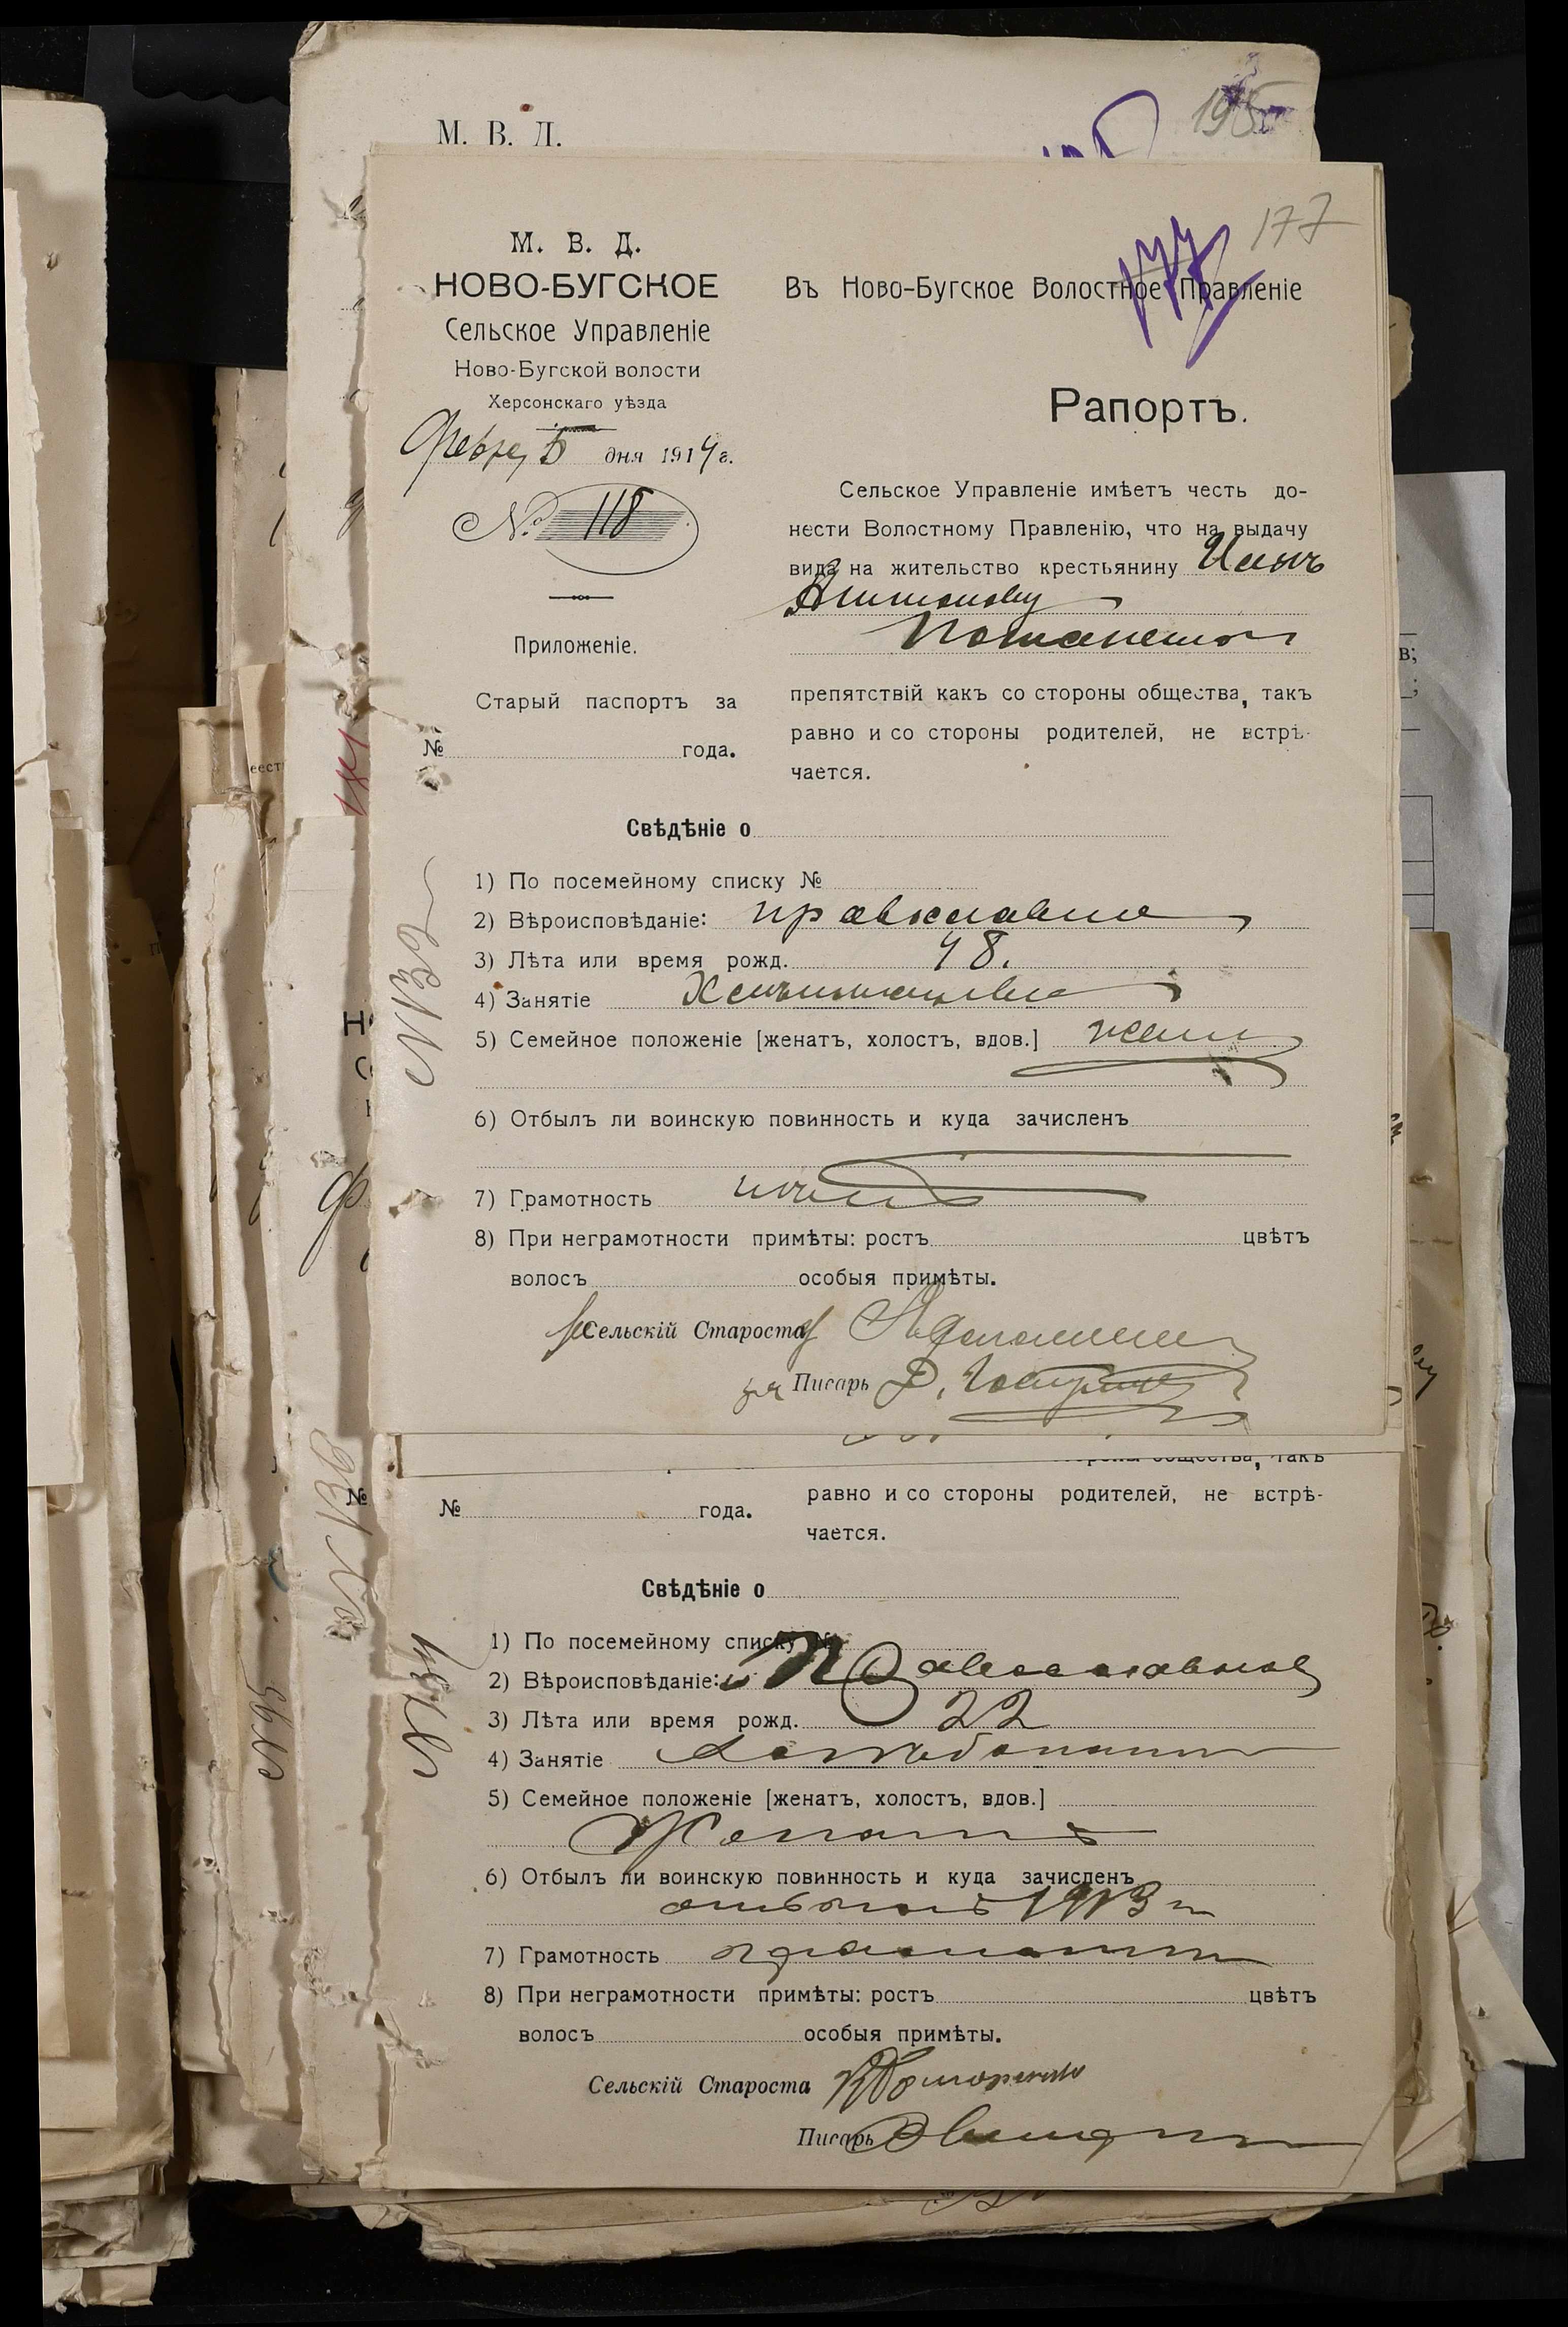 М. В. Д.
195
177
177
М. В. Д.
НОВО-БУГСКОЕ
Сельское Управленіе
Ново-Бугской волости
Херсонскаго уѣзда
Февр 5 дня 1914 г.
№ 118
Приложеніе.
Старый паспортъ за
№ года.
Въ Ново-Бугское Волостное Правленіе
Рапортъ.
Сельское Управленіе имѣетъ честь до-
нести Волостному Правленію, что на выдачу
вида на жительство крестьянину
препятствій какъ со стороны общества, такъ
равно и со стороны родителей, не встрѣ-
чается.
Свѣдѣніе о
1) По посемейному списку №
2) Вѣроисповѣданіе: православна
3) Лѣта или время рожд. 48.
4) Занятіе
5) Семейное положеніе [женатъ, холостъ, вдов.] жен
6) Отбылъ ли воинскую повинность и куда зачисленъ
7) Грамотность
8) При неграмотности примѣты: ростъ цвѣтъ
волосъ особыя примѣты.
Сельскій Староста
Писарь
общества, такъ
№ года.
равно и со стороны родителей, не встрѣ-
чается.
Свѣдѣніе о
1) По посемейному списку №
2) Вѣроисповѣданіе: Православное
3) Лѣта или время рожд. 22
4) Занятіе
5) Семейное положеніе [женатъ, холостъ, вдов.]
Женатъ
6) Отбылъ ли воинскую повинность и куда зачисленъ
1913 г
7) Грамотность грамотн
8) При неграмотности примѣты: ростъ цвѣтъ
волосъ особыя примѣты.
Сельскій Староста
Писарь